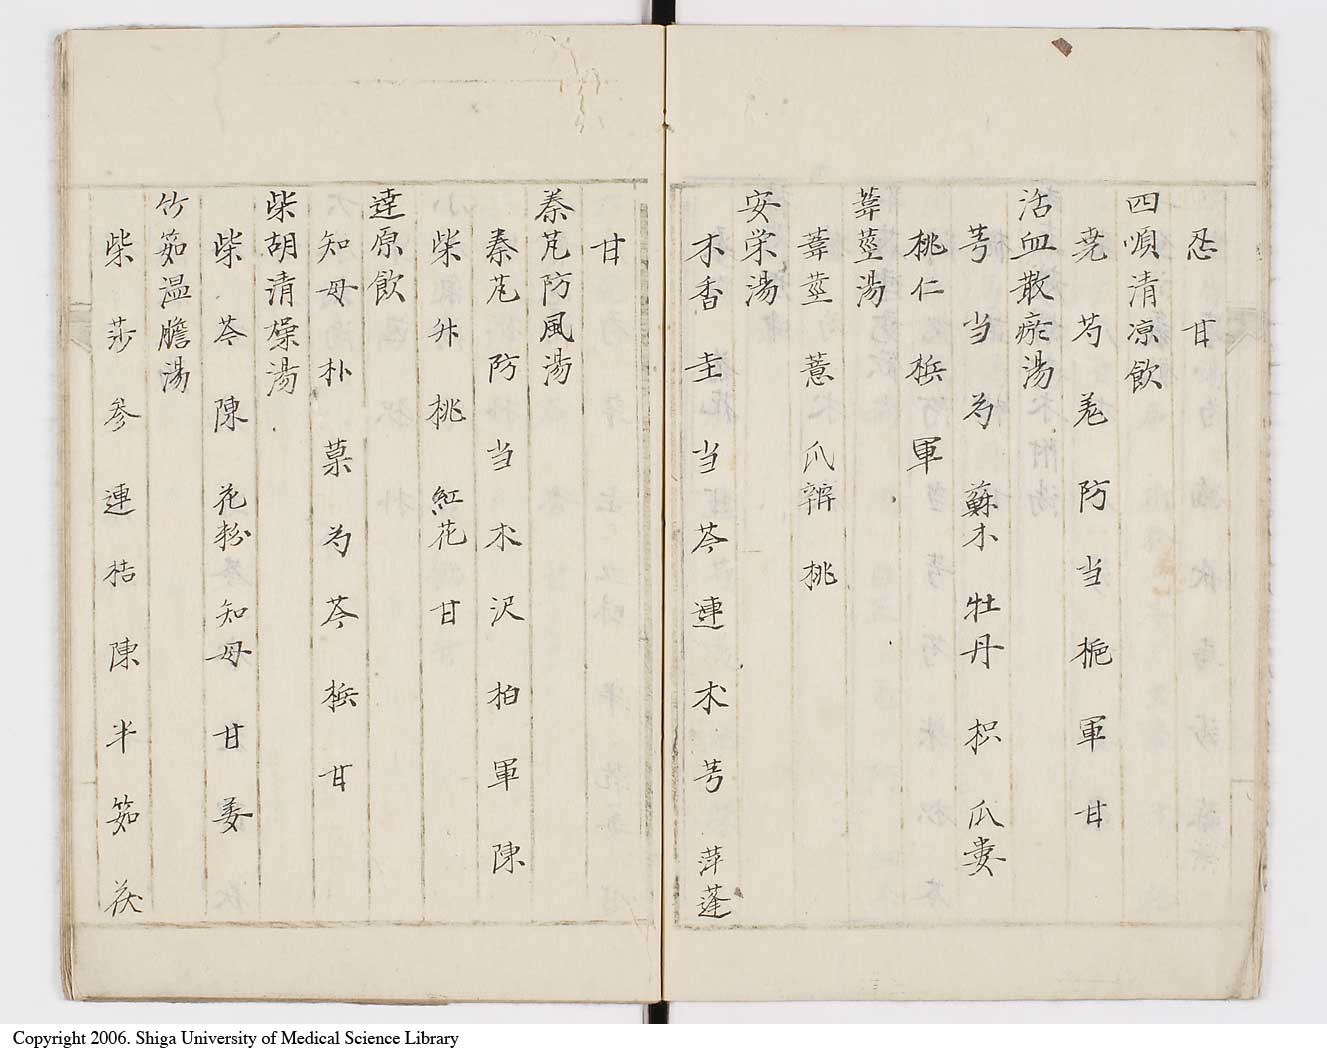 忍 甘
四順清凉飲
羌 芍 芫 防 当 梔 軍 甘
活血散瘀湯
芎 当 芍 蘇木 牡丹 枳 爪婁
桃仁 梹 軍
葦莖湯
葦莖 薏 爪辨 桃
安栄湯
木香 圭 当 芩 連 朮 芎 萍蓬
甘
秦艽防風湯
秦艽 防 当 朮 沢 柏 軍 陳
柴 升 桃 紅花 甘
達原飲
知母 朴 菓 芍 芩 梹 甘
柴胡清燥湯
柴 芩 陳 花粉 知母 甘 姜
竹筎温膽湯
柴 莎 参 連 桔 陳 半 筎 茯
Copyright 2006. Shiga University of Medical Science Library